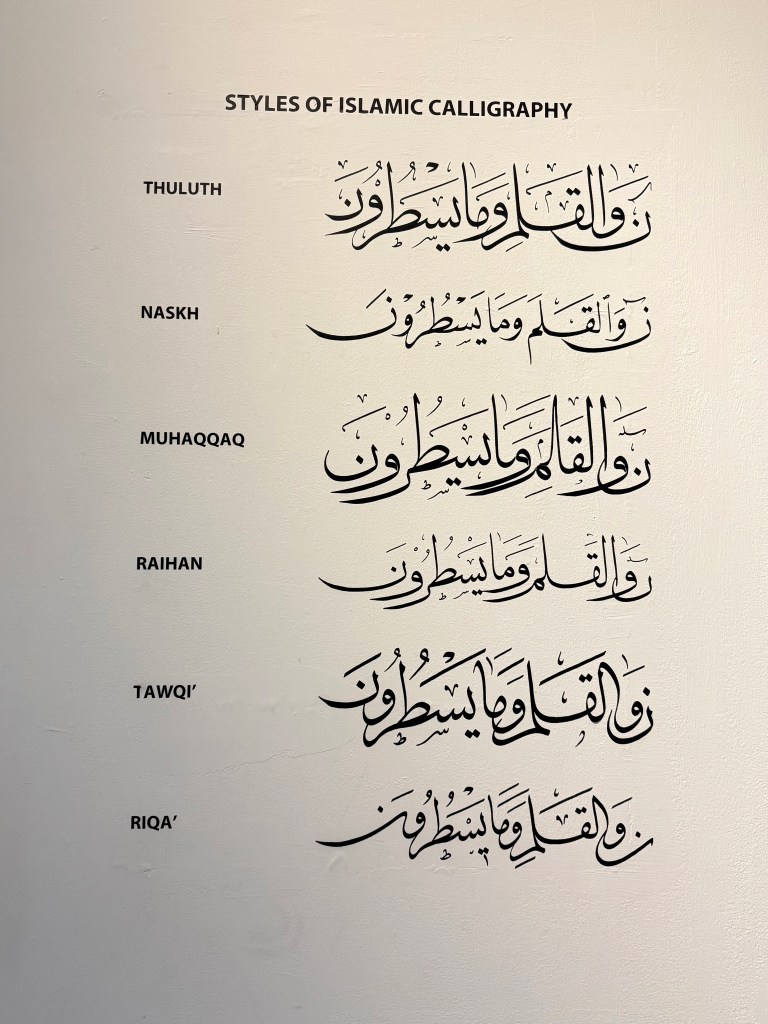 STYLES OF ISLAMIC CALLIGRAPHY
THULUTH ن وَالقَلَمِ وَمَا يَسْطُرُونَ
NASKH ن وَالقَلَمِ وَمَا يَسْطُرُونَ
MUHAQQAQ ن وَالقَلَمِ وَمَا يَسْطُرُونَ
RAIHAN ن وَالقَلَمِ وَمَا يَسْطُرُونَ
TAWQI’ ن وَالقَلَمِ وَمَا يَسْطُرُونَ
RIQA’ ن وَالقَلَمِ وَمَا يَسْطُرُونَ